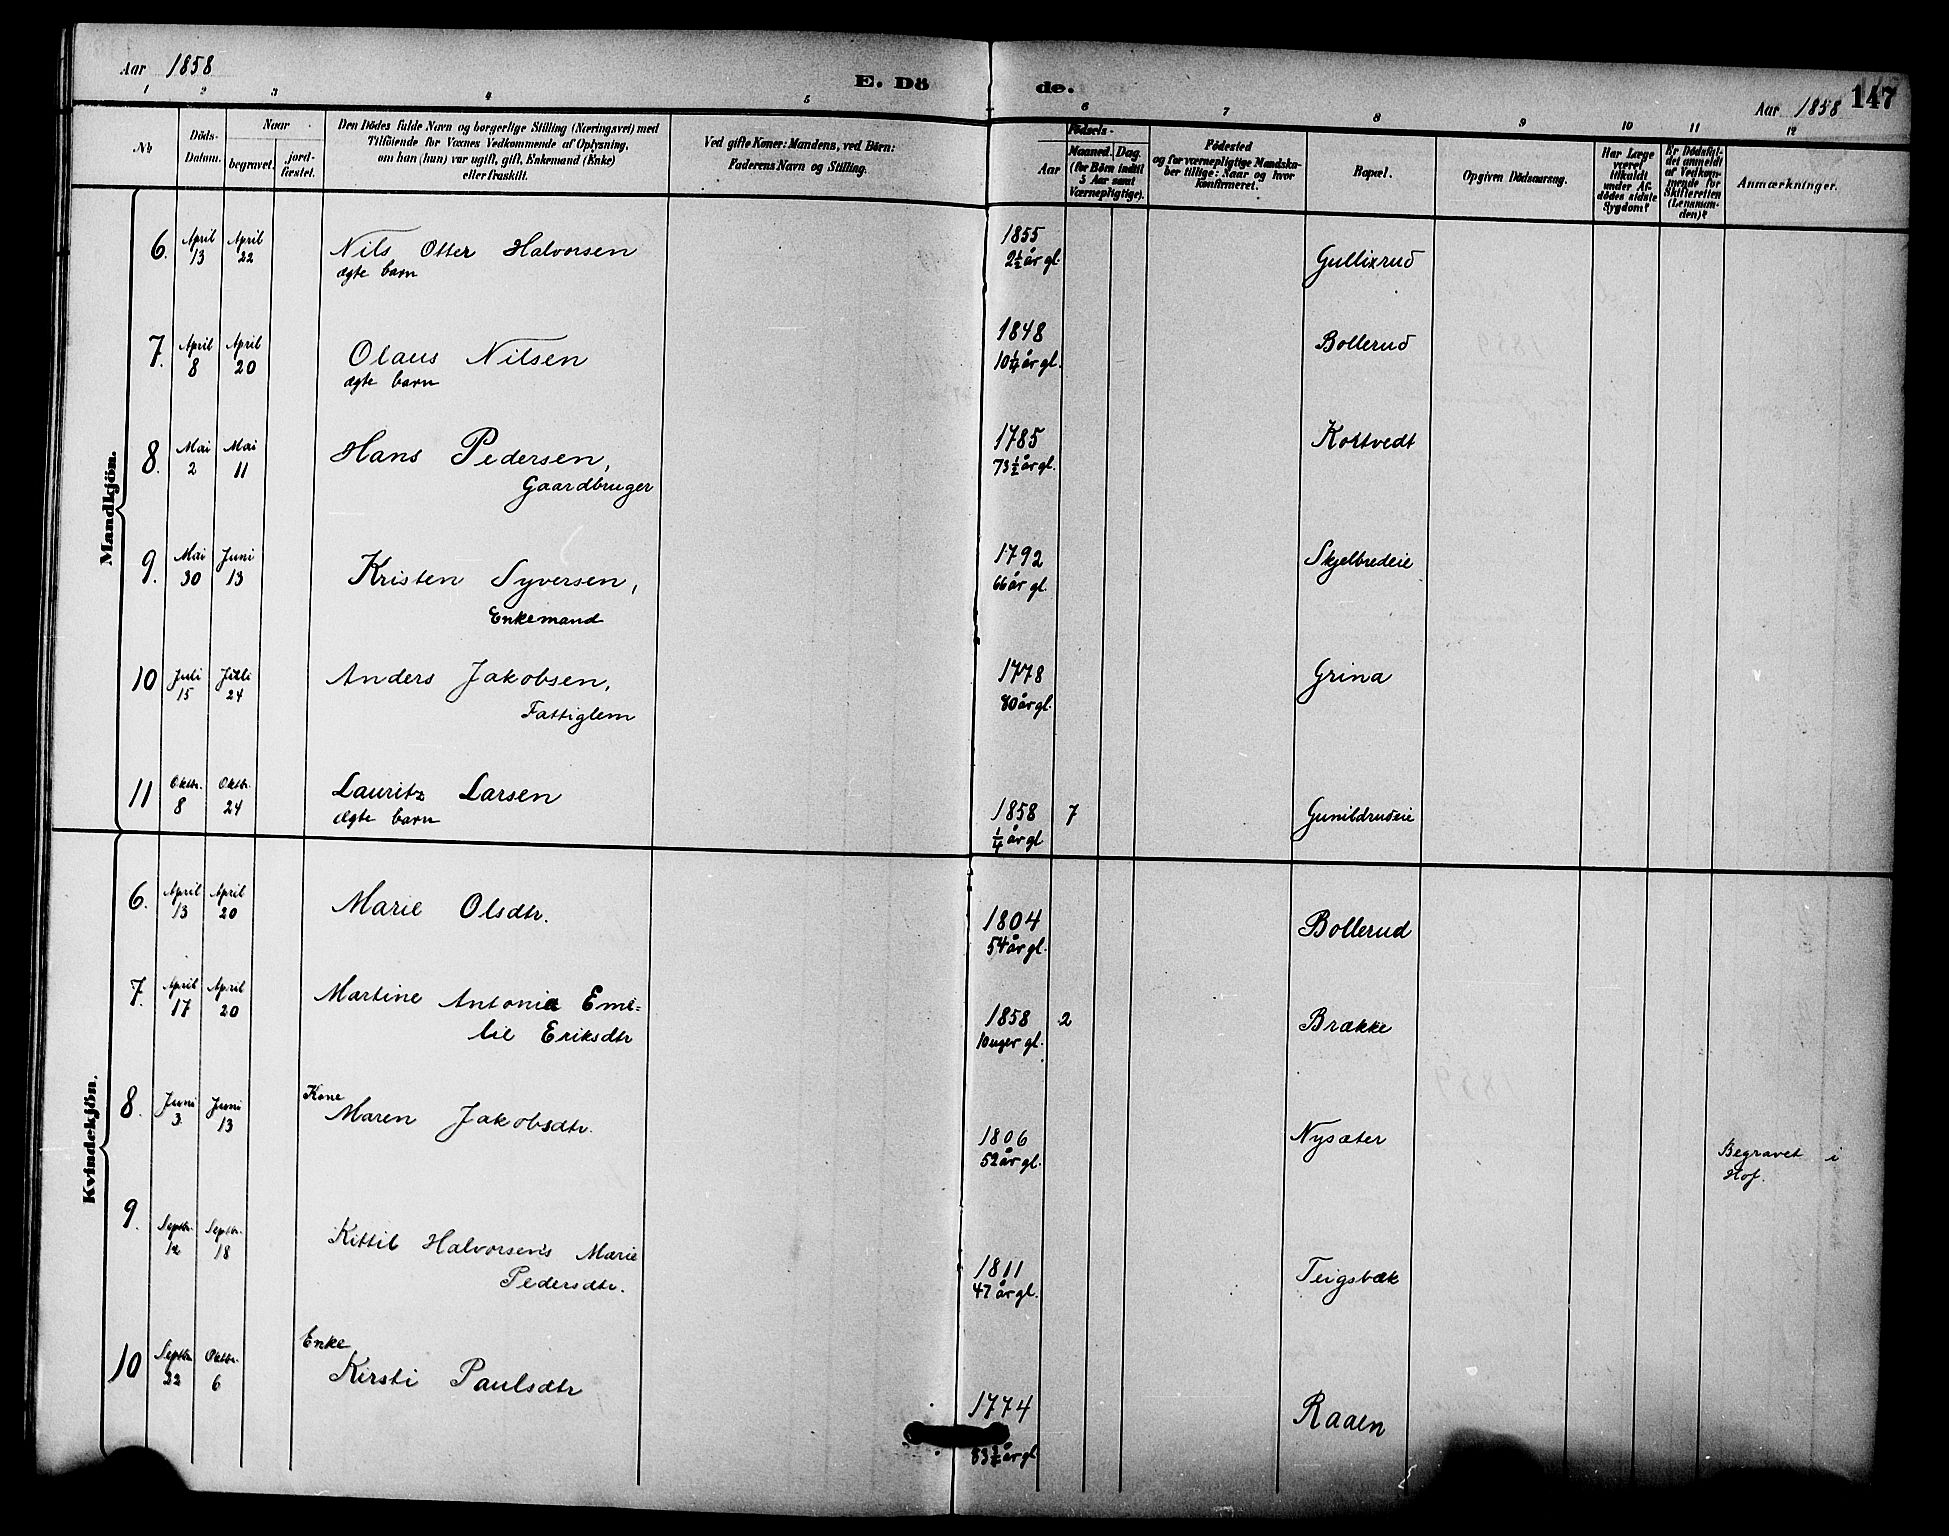 Aar 1858
E. Dö de.
Aar 1858 147
1 2 3 4 5 6 7 8 9 10 11 12
No
Döds-
Datum.
Naar
begravet.
jord-
fæstet.
Den Dödes fulde Navn og borgerlige Stilling (Næringsvei) med
Tilföiende for Voxnes Vedkommende af Oplysning,
om han (hun) var ugift, gift, Enkemand (Enke)
eller fraskilt.
Ved gifte Koner: Mandens, ved Börn:
Faderens Navn og Stilling.
Födsels-
Aar
Maaned. Dag.
(for Börn indtil
5 Aar samt
Værnepligtige).
Födested
og for værnepligtige Mandska-
ber tillige: Naar og hvor
konfirmeret.
Bopæl.
Opgiven Dödsaarsag.
Har Læge
været
tilkaldt
under Af-
dödes sidste
Sygdom?
Er Dödsfal-
det anmeldt
af Vedkom-
mende for
Skifteretten
(Lensman-
den)?
Anmærkninger.
Mandkjön.
6. April 13 April 22 Nils Otter Halvorsen 1855 Gullixrud
ægte barn 2½ år gl.
7. April 8 April 20 Olaus Nilsen 1848 Bollerud
ægte barn 10¼ år gl.
8. Mai 2 Mai 11 Hans Pedersen, 1785 Koltvedt
Gaardbruger 73½ år gl.
9. Mai 30 Juni 13 Kristen Syversen, 1792 Skjelbredeie
Enkemand 66 år gl.
10 Juli 15 Juli 24 Anders Jakobsen, 1778 Grina
Fattiglem 80 år gl.
11 Oktbr. 8 Oktbr. 24 Lauritz Larsen 1858 7 Gunildrudeie
ægte barn ¼ år gl
Kvindekjön.
6. April 13 April 20 Marie Olsdtr. 1804 Bollerud
54 år gl.
7. April 17 April 20 Martine Antonie Emi- 1858 2 Brække
lie Eriksdtr 10 uger gl.
8. Juni 3 Juni 13 Kone
Maren Jakobsdtr. 1806 Nysæter
52 år gl. Begravet i
Hof.
9. Septbr. 12 Septbr. 18 Kittil Halvorsens Marie 1811 Teigsbæk
Pedersdtr. 47 år gl.
10 Septbr 22 Oktbr. 6 Enke
Kirsti Paulsdtr 1774 Raaen
83¾ år gl